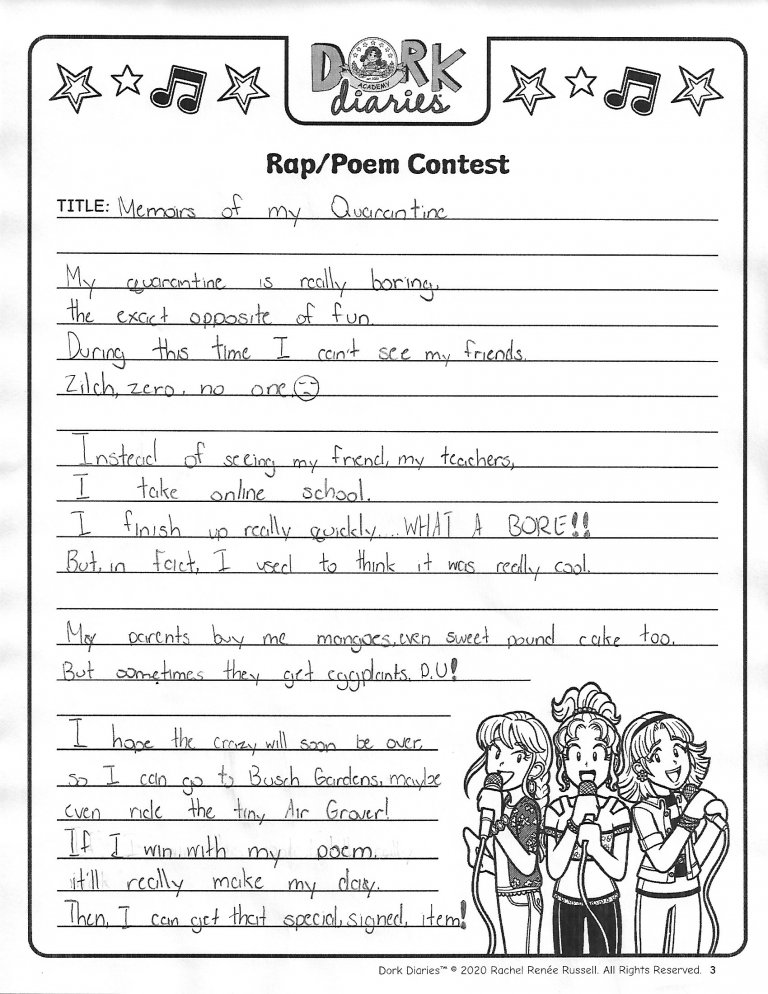 DORK
ACADEMY
diaries
Rap/Poem Contest
TITLE: Memoirs of my Quarantine
My quarantine is really boring,
the exact opposite of fun.
During this time I can't see my friends.
Zilch, zero, no one.
Instead of seeing my friend, my teachers,
I take online school.
I finish up really quickly....WHAT A BORE!!
But, in fact, I used to think it was really cool.
My parents buy me mangoes, even sweet pound cake too.
But sometimes they get eggplants. P.U!
I hope the crazy will soon be over,
so I can go to Busch Gardens, maybe
even ride the tiny Air Grover!
If I win with my poem,
it'll really make my day.
Then, I can get that special, signed, item!
Dork Diaries™ © 2020 Rachel Renée Russell. All Rights Reserved. 3